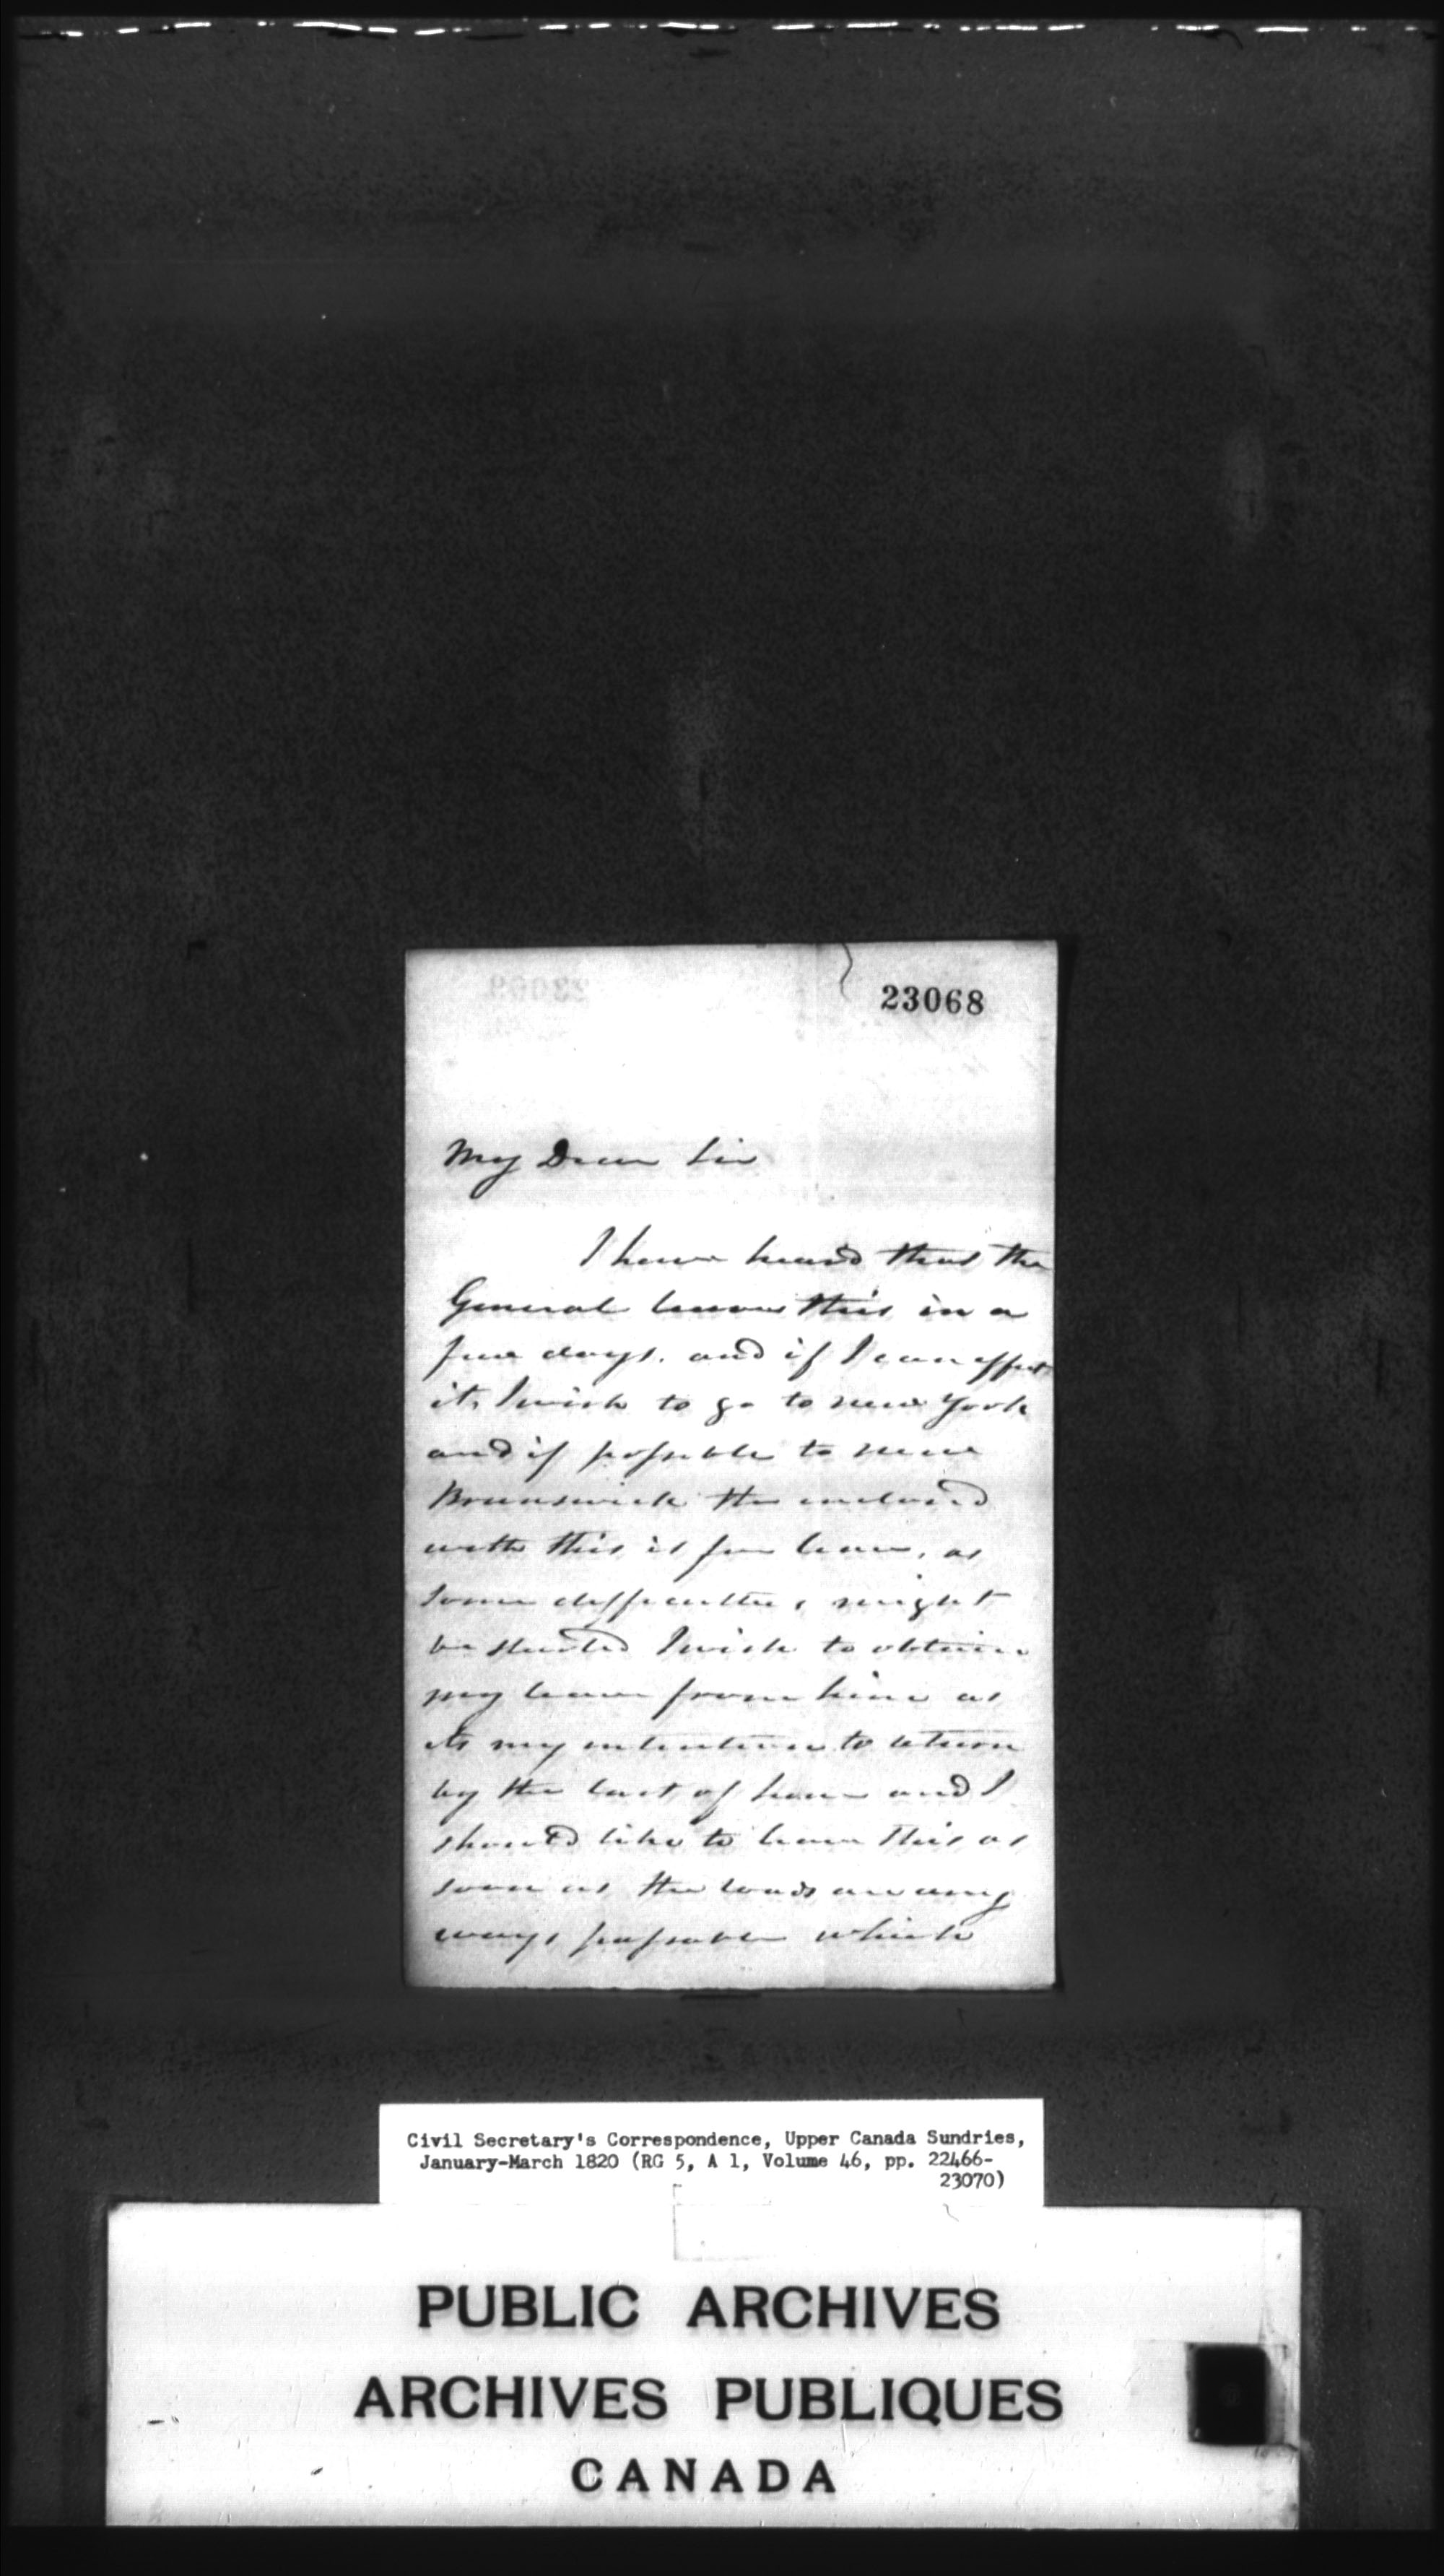 23068
My Dear Sir
I have heard that the
General leaves this in a
few days. and if I can effect
it, I wish to go to new York
and if possible to new
Brunswick the enclosed
with this is for leave, as
some difficulties might
be started I wish to obtain
my leave from him as
its my intention to return
by the last of June and I
should like to leave this as
soon as the roads are any
ways passable which
Civil Secretary's Correspondence, Upper Canada Sundries,
January-March 1820 (RG 5, A 1, Volume 46, pp. 22466-
23070)
PUBLIC ARCHIVES
ARCHIVES PUBLIQUES
CANADA